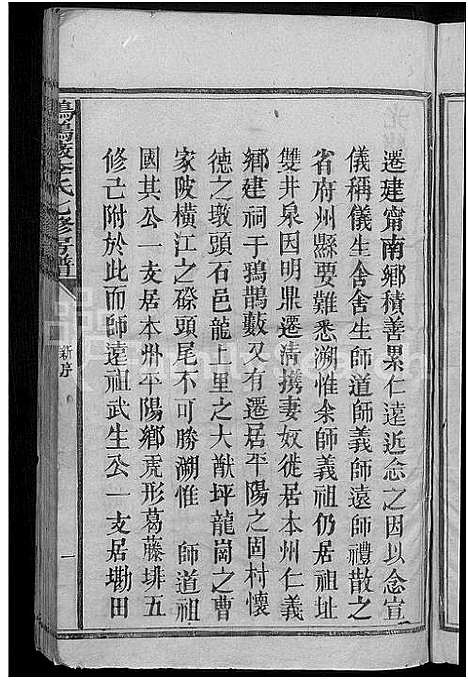 遷建甯南鄉積善累仁遠近念之因以念宣
儀稱儀生舍舍生師道師義師遠師禮散之
省府州縣要難悉溯惟余師義祖仍居祖址
雙井泉因明鼎遷清携妻奴徙居本州仁義
鄉建祠于鴉鵲藪又有遷居平陽之固村懷
德之墩頭石邑龍上里之大猷坪龍崗之曹
家陂橫江之磜頭尾不可勝溯惟 師道祖
國其公一支居本州平陽鄉虎形葛藤排五
修亡附於此而師遠祖武生公一支居墈田
李氏七修房譜
新序
一